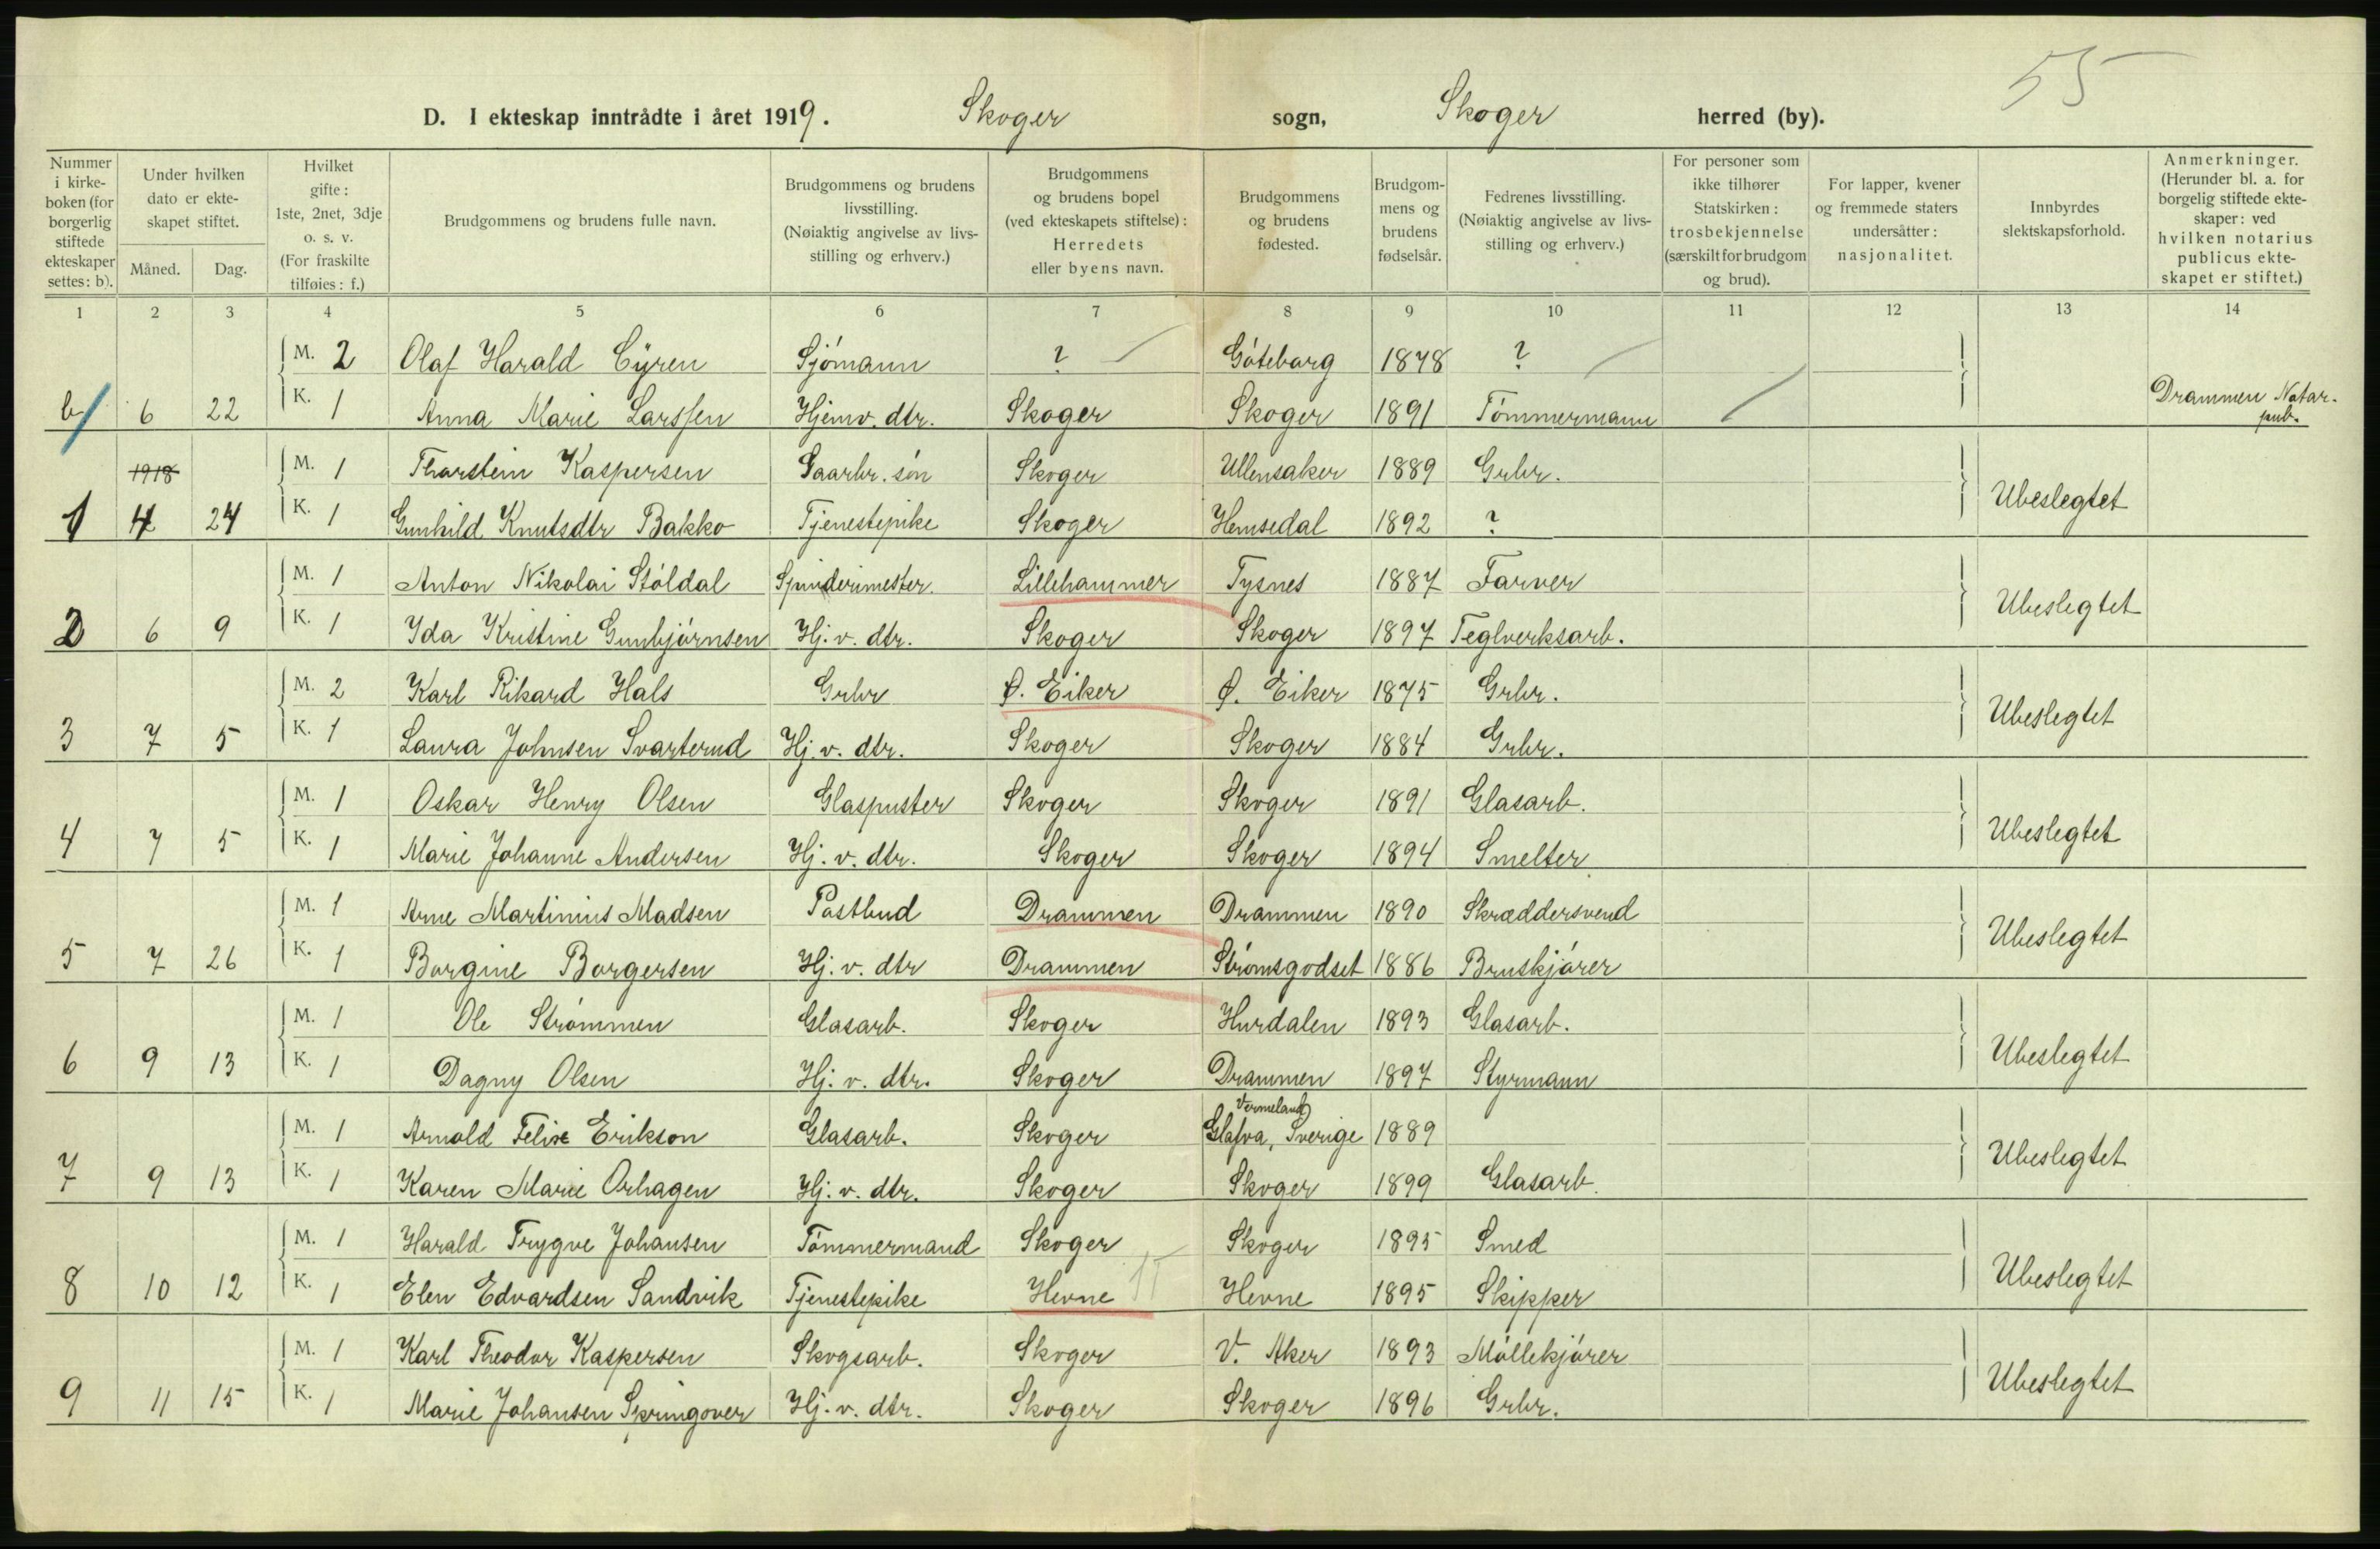 55
D. I ekteskap inntrådte i året 1919. Skoger sogn, Skoger herred (by).
Nummer i kirke-boken (for borgerlig stiftede ekteskaper settes: b).
Under hvilken dato er ekte-skapet stiftet.
Måned. Dag.
Hvilket gifte: 1ste, 2net, 3dje o. s. v. (For fraskilte tilføies: f.)
Brudgommens og brudens fulle navn.
Brudgommens og brudens livsstilling. (Nøiaktig angivelse av livs-stilling og erhverv.)
Brudgommens og brudens bopel (ved ekteskapets stiftelse): Herredets eller byens navn.
Brudgommens og brudens fødested.
Brudgom-mens og brudens fødselsår.
Fedrenes livsstilling. (Nøiaktig angivelse av livs-stilling og erhverv.)
For personer som ikke tilhører Statskirken: trosbekjennelse (særskilt for brudgom og brud).
For lapper, kvener og fremmede staters undersåtter: nasjonalitet.
Innbyrdes slektskapsforhold.
Anmerkninger. (Herunder bl. a. for borgelig stiftede ekte-skaper: ved hvilken notarius publicus ekte-skapet er stiftet.)
1 2 3 4 5 6 7 8 9 10 11 12 13 14
M. 2 Olaf Harald Cÿren Sjómann ? Góteborg 1878 ?
b 6 22 K. 1 Anna Marie Larssen Hjemv. dtr. Skoger Skoger 1891 Tómmermann Drammen Notar. pub.
1918 M. 1 Tharstein Kaspersen Gaarbr. són Skoger Ullensaker 1889 Grbr.
1 4 24 K. 1 Gunhild Knutsdtr Bakko Tjenestepike Skoger Hemsedal 1892 ? Ubeslegtet
M. 1 Anton Nikolai Stóldal Spinderimester. Lillehammer Tysnes 1887 Farver
2 6 9 K. 1 Ida Kristine Gunbjórnsen Hj. v. dtr. Skoger Skoger 1897 Teglverksarb. Ubeslegtet
M. 2 Karl Rikard Hals Grbr Ø. Eiker Ø. Eiker 1875 Grbr.
3 7 5 K. 1 Laura Johnsen Svarterud Hj. v. dtr. Skoger Skoger 1884 Grbr. Ubeslegtet
M. 1 Oskar Henry Olsen Glaspuster Skoger Skoger 1891 Glasarb.
4 7 5 K. 1 Marie Johanne Andersen Hj. v. dtr. Skoger Skoger 1894 Smelter Ubeslegtet
M. 1 Arne Martinius Madsen Postbud Drammen Drammen 1890 Skræddersvend
5 7 26 K. 1 Borgine Borgersen Hj. v. dtr Drammen Strómsgodset 1886 Bruskjórer Ubeslegtet
M. 1 Ole Strømmen Glasarb. Skoger Hurdalen 1893 Glasarb.
6 9 13 K. 1 Dagny Olsen Hj. v. dtr. Skoger Drammen 1897 Styrmann Ubeslegtet
M. 1 Arnold Felix Erikson Glasarb. Skoger Vermeland Glafva, Sverige 1889
7 9 13 K. 1 Karen Marie Orhagen Hj. v. dtr. Skoger Skoger 1899 Glasarb. Ubeslegtet
M. 1 Harald Trygve Johansen Tómmermand Skoger Skoger 1895 Smed
8 10 12 K. 1 Elen Edvardsen Sandvik Tjenestepike Hevne Hevne 1895 Skipper Ubeslegtet
M. 1 Karl Theodor Kaspersen Skogsarb. Skoger V. Aker 1893 Móllekjórer
9 11 15 K. 1 Marie Johansen Springover Hj. v. dtr. Skoger Skoger 1896 Grbr. Ubeslegtet